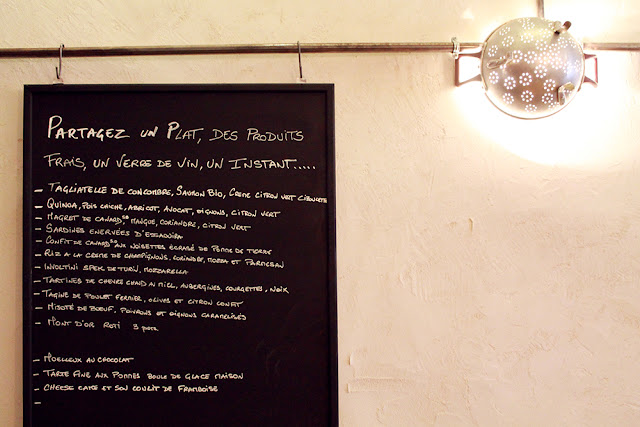 PARTAGEZ UN PLAT, DES PRODUITS
FRAIS, UN VERRE DE VIN, UN INSTANT.....
– TAGLIATELLE DE CONCOMBRE, SAUMON BIO, CRÈME CITRON VERT CIBOULETTE
– QUINOA, POIS CHICHE, ABRICOT, AVOCAT, OIGNONS, CITRON VERT
– MAGRET DE CANARD SO MANGUE, CORIANDRE, CITRON VERT
– SARDINES ENERVÉES D'ESSAOUIRA
– CONFIT DE CANARD SO AUX NOISETTES ÉCRASÉ DE POMME DE TERRE
– RIZ A LA CREME DE CHAMPIGNONS, CORIANDRE, MOZZA ET PARMESAN
– INVOLTINI SPEK DE TURIN, MOZZARELLA
– TARTINES DE CHEVRE CHAUD AU MIEL, AUBERGINES, COURGETTES, NOIX
– TAGINE DE POULET FERMIER, OLIVES ET CITRON CONFIT
– MIJOTÉ DE BOEUF, POIVRONS ET OIGNONS CARAMELISÉS
– MONT D'OR ROTI 3 pers
– MOELLEUX AU CHOCOLAT
– TARTE FINE AUX POMMES BOULE DE GLACE MAISON
– CHEESE CAKE ET SON COULIT DE FRAMBOISE
–